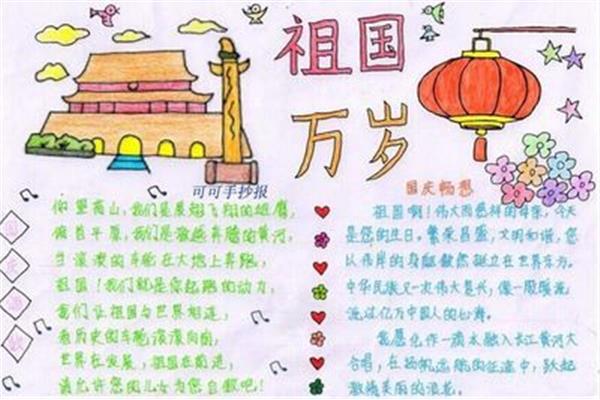 祖国
万岁
可可手抄报
国庆畅想
仰望高山，我们是展翅飞翔的雄鹰，
俯首平原，我们是激越奔腾的黄河，
当滚滚的车轮在大地上奔跑，
祖国！我们就是你起跑的动力，
我们让祖国与世界相连，
看历史的车轮滚滚向前，
世界在发展，祖国在前进，
请允许您的儿女为您自傲吧！
祖国啊！伟大而慈祥的母亲，今天
是您的生日。繁荣昌盛，文明和谐，您
以伟岸的身躯傲然挺立在世界东方。
中华民族又一次伟大复兴，像一股暖流
流过亿万中国人的心海。
我愿化作一滴水融入长江黄河大
合唱，在扬帆远航的征途中，跃起
激情美丽的浪花。